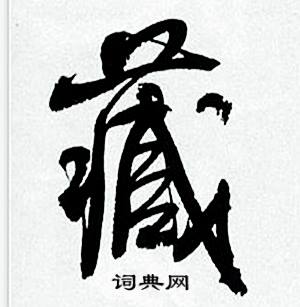 藏
词典网